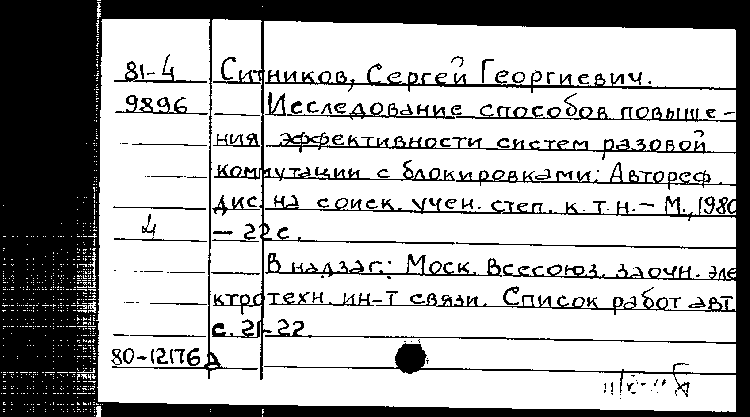 81-4 Ситников, Сергей Георгиевич.
9896 Исследование способов повыше-
ния эффективности систем разовой
коммутации с блокировками: Автореф.
дис. на соиск. учен. степ. к.т.н. - М., 1980
4 - 22 с.
В надзаг.: Моск. всесоюз. заочн. эле
ктротехн. ин-т связи. Список работ авт.
с. 21-22.
80-12176а